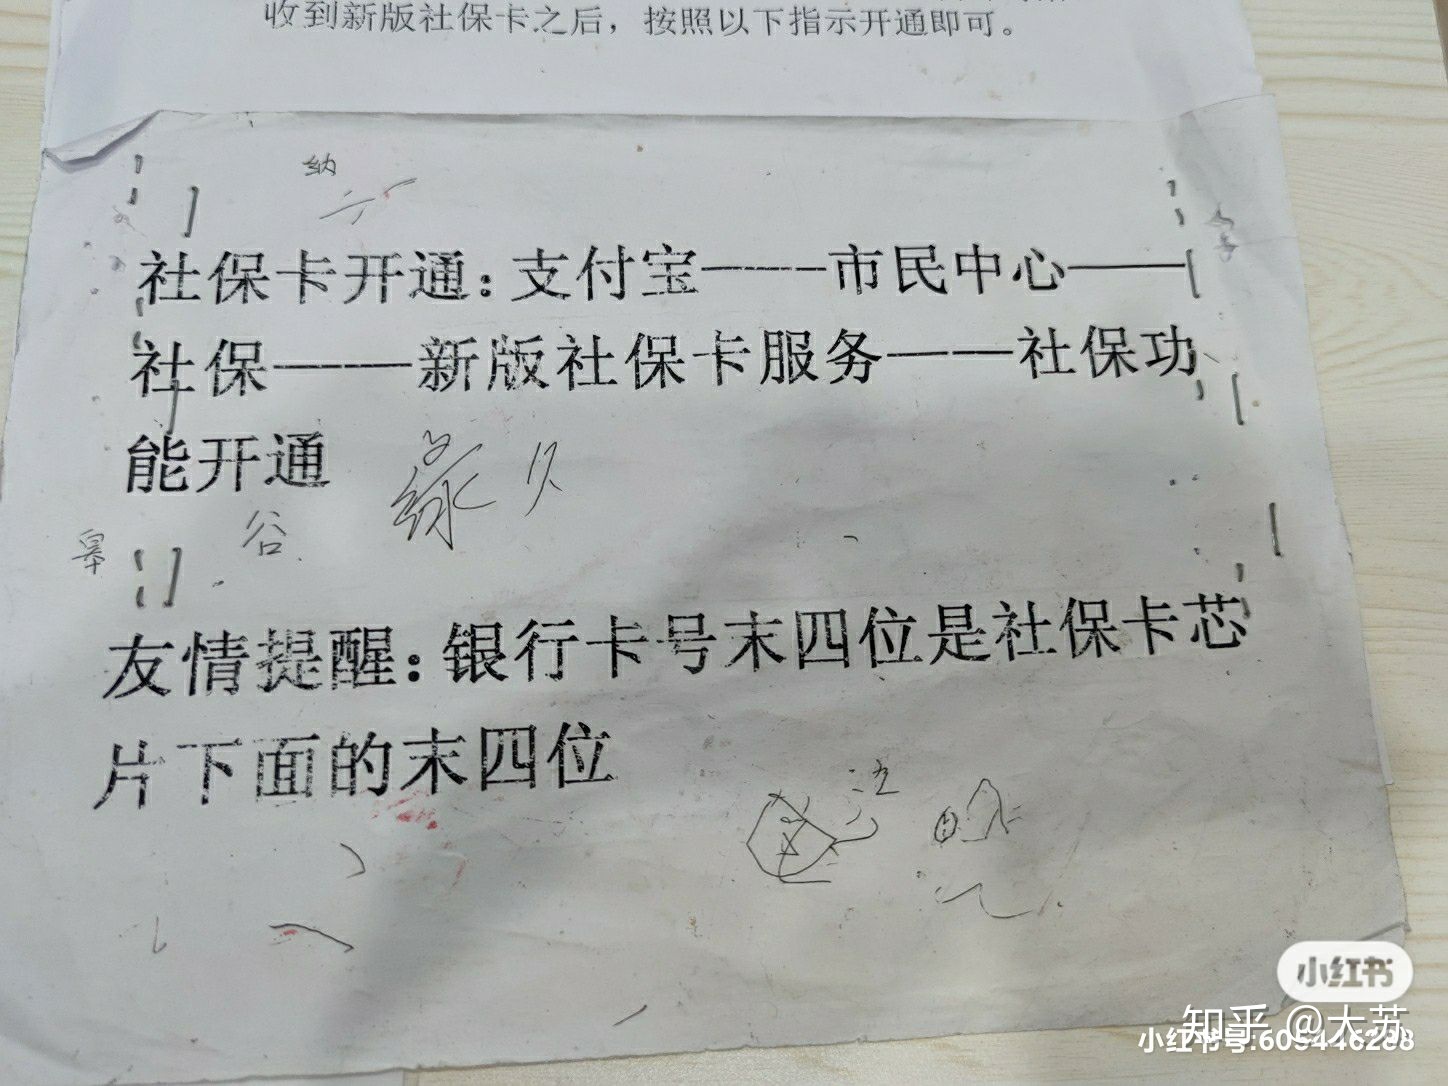 收到新版社保卡之后，按照以下指示开通即可。
纳
社保卡开通：支付宝——市民中心——
社保——新版社保卡服务——社保功
能开通
谷
友情提醒：银行卡号末四位是社保卡芯
片下面的末四位
小红书
知乎 @大苏
小红书号:605446288